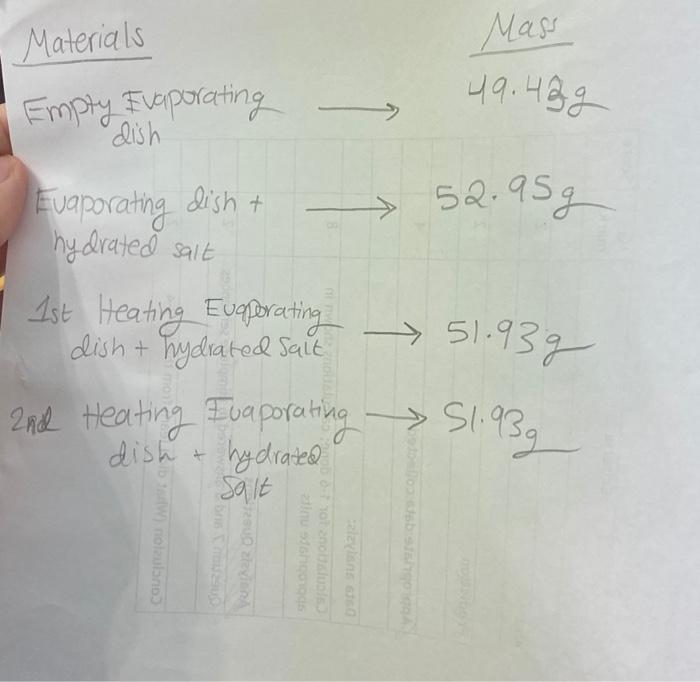 Materials Mass
Empty Evaporating
dish
Evaporating dish + 52.95g
hydrated salt
1st Heating Evaporating
dish + hydrated Salt 51.93g
2nd Heating Evaporating 51.93g
dish + hydrated
Salt